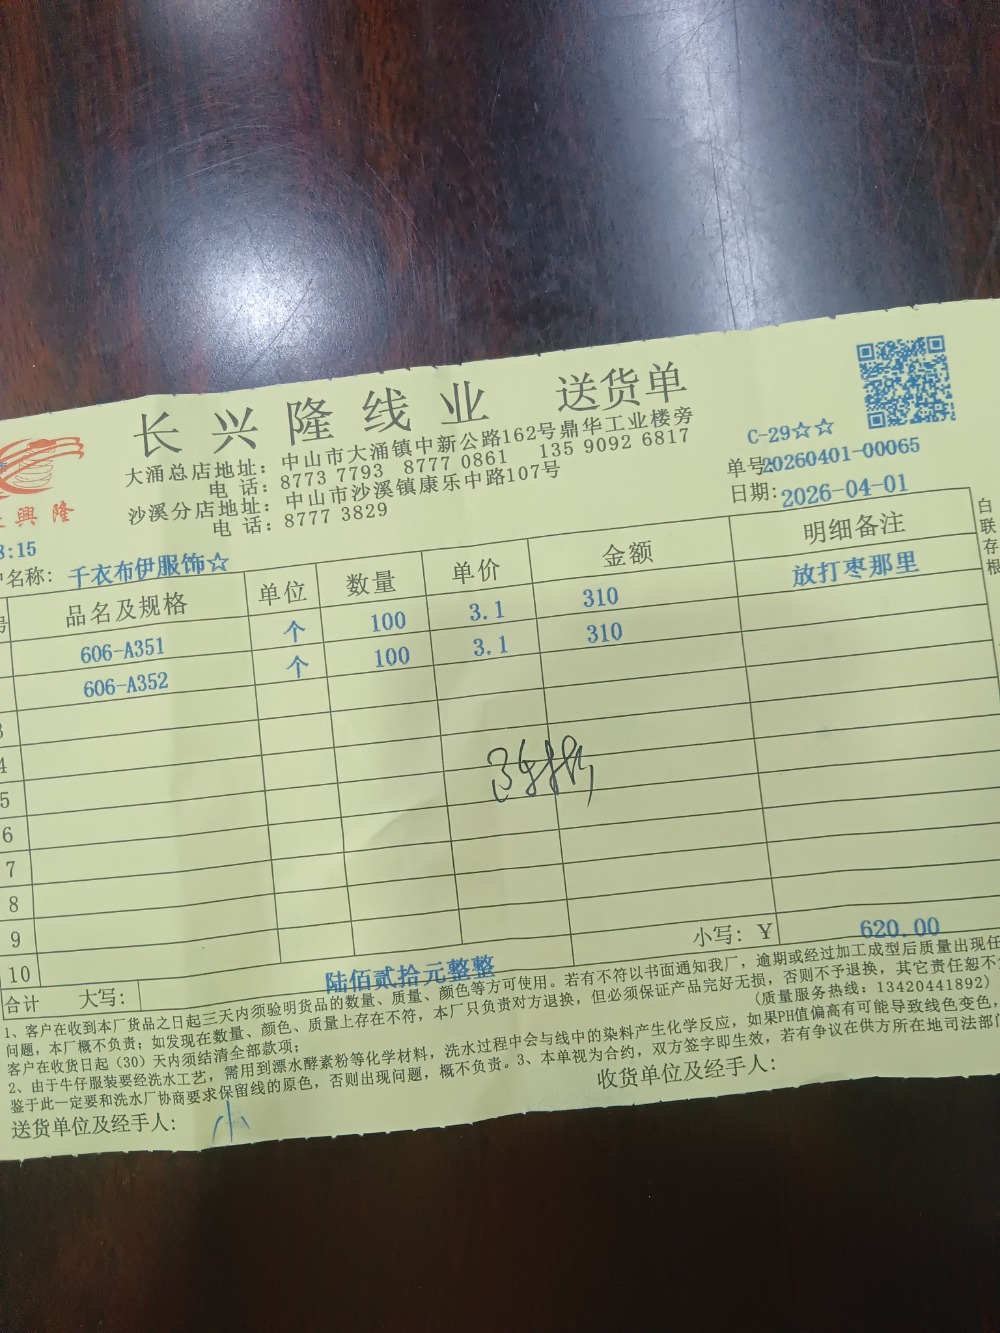 长兴隆线业 送货单
大涌总店地址：中山市大涌镇中新公路162号鼎华工业楼旁
电 话：8773 7793 8777 0861 135 9092 6817
沙溪分店地址：中山市沙溪镇康乐中路107号
电 话：8777 3829
C-29☆☆
单号:20260401-00065
日期:2026-04-01
興隆
8:15
户名称: 千衣布伊服饰☆
号 品名及规格 单位 数量 单价 金额 明细备注
606-A351 个 100 3.1 310 放打枣那里
606-A352 个 100 3.1 310
3
4
5
6
7
8
9
10
小写：Y 620.00
合计 大写： 陆佰贰拾元整整
白联存根
1、客户在收到本厂货品之日起三天内须验明货品的数量、质量、颜色等方可使用。若有不符以书面通知我厂，逾期或经过加工成型后质量出现任
问题，本厂概不负责；如发现在数量、颜色、质量上存在不符，本厂只负责对方退换，但必须保证产品完好无损，否则不予退换，其它责任恕不
客户在收货日起（30）天内须结清全部款项； （质量服务热线：13420441892）
2、由于牛仔服装要经洗水工艺，需用到漂水酵素粉等化学材料，洗水过程中会与线中的染料产生化学反应，如果PH值偏高有可能导致线色变色，
鉴于此一定要和洗水厂协商要求保留线的原色，否则出现问题，概不负责。3、本单视为合约，双方签字即生效，若有争议在供方所在地司法部门
送货单位及经手人: 收货单位及经手人: